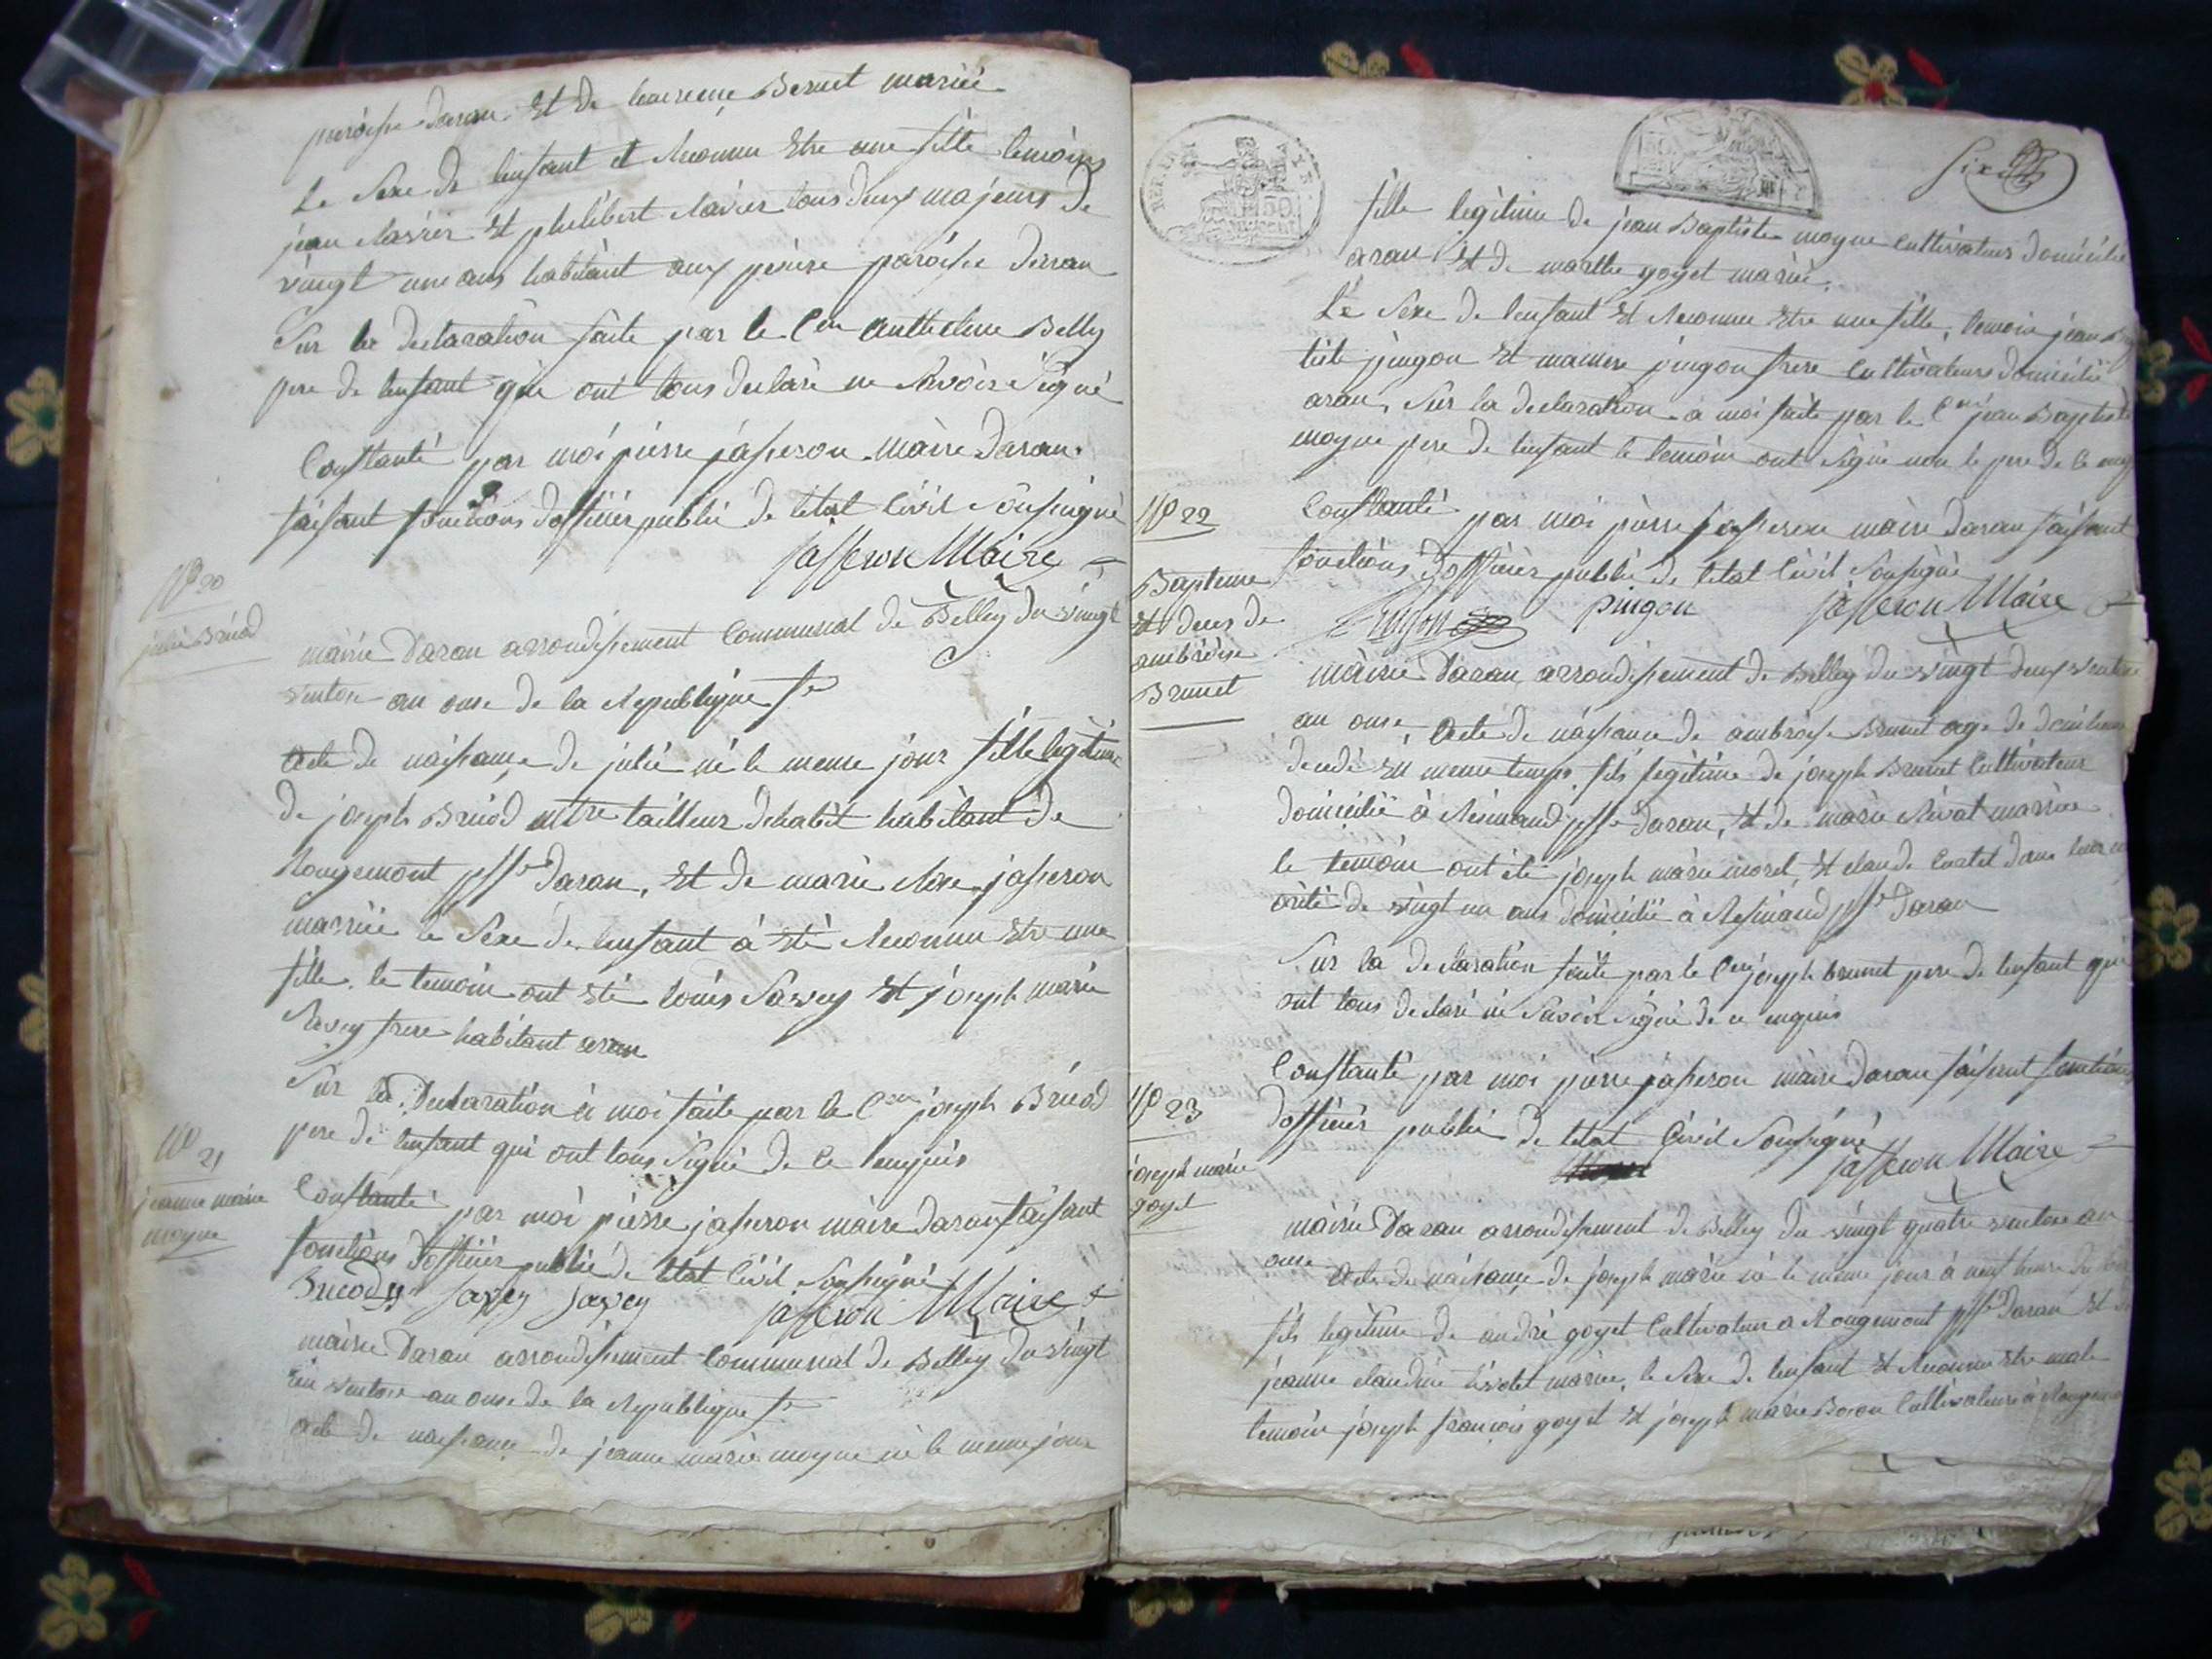 paroisse daran Et de Bernet mariée
Le Sexe de lenfant et Reconnu Etre une fille temoins
jean Et philibert tous deux majeurs de
vingt une ans habitant aux paroisse daran
Sur la declaration faite par le Cen antheleme Belly
pere de lenfant qui ont tous declaré ne Savoir Signé
Constanté par moi pierre jasseron maire daran
faisant fonctions dofficier public de letat Civil Soussigné
jasseron Maire
No 20
julie Briod
mairie Daran arrondissement Communal de Belley du vingt
ventose an onse de la Republique fse
acte de naissance de julie né le meme jour fille legitime
de joseph Briod mtre tailleur dhabit habitant de
Rougemont psse daran, Et de marie jasseron
mariée le Sexe de lenfant à Eté Reconnu Etre une
fille. le temoin ont Eté louis Savey Et joseph marie
Savey frere habitant aran
Sur la Declaration à moi faite par le Cen joseph Briod
pere de lenfant qui ont tous Signé de ce enquis
Constanté par moi pierre jasseron maire daran faisant
fonctions dofficier public de letat Civil Soussigné
Briod Savey Savey jasseron Maire
No 21
jeanne marie
moyne
mairie Daran arrondissement Communal de Belley du vingt
un ventose an onse de la Republique fse
acte de naissance de jeanne marie moyne né le meme jour
six
fille legitime de jean Baptiste moyne Cultivateur domicilié
aran Et de marthe goyet mariée.
Le Sexe de lenfant Et Reconnu Etre une fille, temoin jean
tiste pingon Et pingon frere Cultivateurs domicilié
aran, Sur la declaration à moi faite par le Cen jean Baptiste
moyne pere de lenfant le temoin ont Signé non le pere de ce
Constanté par moi pierre jasseron maire daran faisant
fonctions dofficier public de letat Civil Soussigné
pingon pingon jasseron Maire
No 22
Bapteme
Et deces de
ambroise
Brunet
mairie Daran arrondissement de Belley du vingt deux ventose
an onse, acte de naissance de ambroise Brunet age de
decedé En meme temps, fils legitime de joseph Brunet Cultivateur
domicilié à psse daran, Et de marie Rivat mariée
le temoin ont été joseph marie morel, Et claude dans leur
orité de vingt un ans domicilié à psse Daran
Sur la declaration faite par le Cen joseph brunet pere de lenfant qui
ont tous declaré né Savoir Signé de ce enquis
Constanté par moi pierre jasseron maire daran faisant fonctions
dofficier public de letat Civil Soussigné
jasseron Maire
No 23
joseph marie
goyet
mairie Daran arrondissement de Belley du vingt quatre ventose an
onse acte de naissance de joseph marie né le meme jour à neuf heure du
fils legitime de andré goyet Cultivateur a Rougemont psse daran Et de
jeanne claudine mariée, le Sexe de lenfant Et Reconnu Etre male
temoin joseph françois goyet Et joseph marie Cultivateurs à